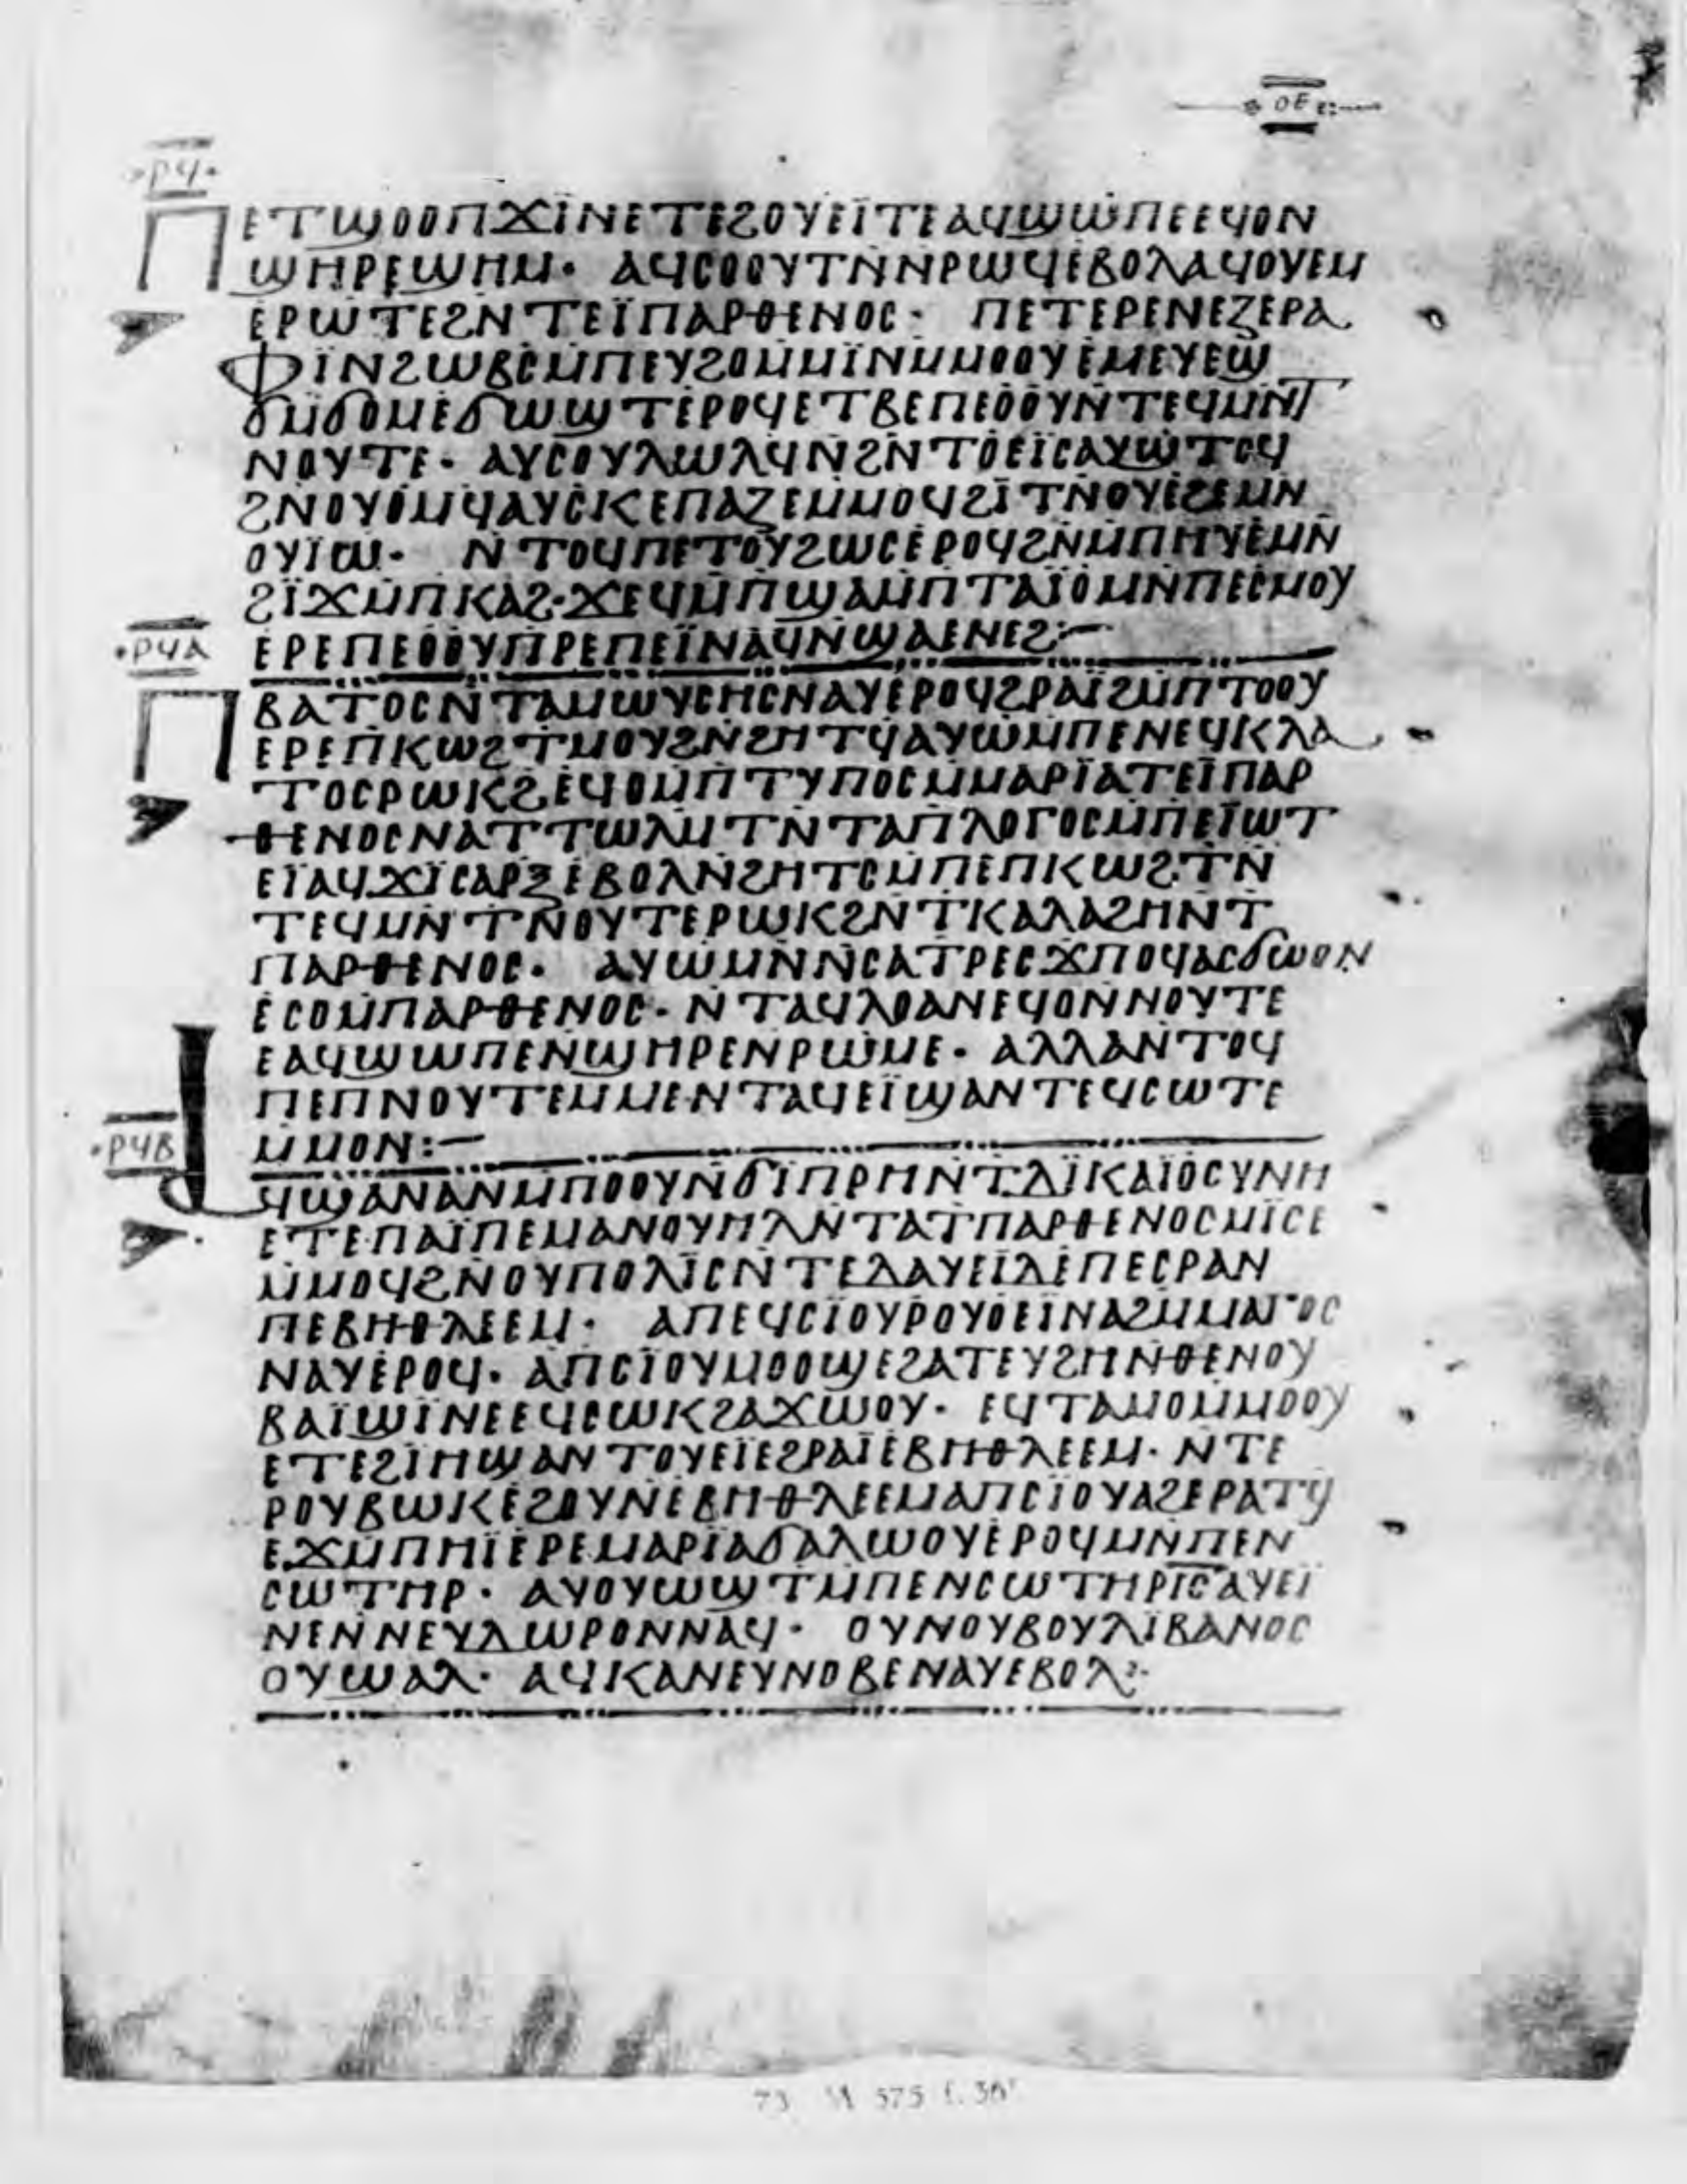 ⲟⲉ
ⲣϥ
ⲡⲉⲧϣⲟⲟⲡϫⲓⲛⲉⲧⲉϩⲟⲩⲉⲓⲧⲉⲁϥϣⲱⲡⲉⲉϥⲟⲛ
ϣⲏⲣⲉϣⲏⲙ· ⲁϥⲥⲟⲟⲩⲧⲛⲛⲣⲱϥⲉⲃⲟⲗⲁϥⲟⲩⲉⲙ
ⲉⲣⲱⲧⲉϩⲛⲧⲉⲓⲡⲁⲣⲑⲉⲛⲟⲥ· ⲡⲉⲧⲉⲣⲉⲛⲉⲍⲉⲣⲁ
ⲫⲓⲛϩⲱⲃⲥⲙⲡⲉⲩϩⲟⲙⲙⲓⲛⲙⲙⲟⲟⲩⲉⲙⲉⲩⲉϣ
ϭⲙϭⲟⲙⲉϭⲱϣⲧⲉⲣⲟϥⲉⲧⲃⲉⲡⲉⲟⲟⲩⲛⲧⲉϥⲙⲛⲧ
ⲛⲟⲩⲧⲉ· ⲁⲩⲥⲟⲩⲗⲱⲗϥⲛϩⲛⲧⲟⲉⲓⲥⲁⲩⲱⲧⲟϥ
ϩⲛⲟⲩⲟⲙϥⲁⲩⲥⲕⲉⲡⲁⲍⲉⲙⲙⲟϥϩⲓⲧⲛⲟⲩⲉϩⲉⲙⲛ
ⲟⲩⲓⲱ· ⲛⲧⲟϥⲡⲉⲧⲟⲩϩⲱⲥⲉⲣⲟϥϩⲛⲙⲡⲏⲩⲉⲙⲛ
ϩⲓϫⲙⲡⲕⲁϩ·ϫⲉϥⲙⲡϣⲁⲙⲡⲧⲁⲓⲟⲙⲛⲡⲉⲥⲙⲟⲩ
ⲉⲣⲉⲡⲉⲟⲟⲩⲡⲣⲉⲡⲉⲓⲛⲁϥⲛϣⲁⲉⲛⲉϩ:—
ⲣϥⲁ
ⲡⲃⲁⲧⲟⲥⲛⲧⲁⲙⲱⲩⲥⲏⲥⲛⲁⲩⲉⲣⲟϥϩⲣⲁⲓϩⲙⲡⲧⲟⲟⲩ
ⲉⲣⲉⲡⲕⲱϩⲧⲙⲟⲩϩⲛϩⲏⲧϥⲁⲩⲱⲙⲡⲉⲛⲉϥⲕⲗⲁ
ⲧⲟⲥⲣⲱⲕϩⲉϥⲟⲙⲡⲧⲩⲡⲟⲥⲙⲙⲁⲣⲓⲁⲧⲉⲓⲡⲁⲣ
ⲑⲉⲛⲟⲥⲛⲁⲧⲧⲱⲗⲙⲧⲛⲧⲁⲡⲗⲟⲅⲟⲥⲙⲡⲉⲓⲱⲧ
ⲉⲓⲁϥϫⲓⲥⲁⲣⲝⲉⲃⲟⲗⲛϩⲏⲧⲥⲙⲡⲉⲡⲕⲱϩⲧⲛ
ⲧⲉϥⲙⲛⲧⲛⲟⲩⲧⲉⲣⲱⲕϩⲛⲧⲕⲁⲗⲁϩⲏⲛⲧ
ⲡⲁⲣⲑⲉⲛⲟⲥ· ⲁⲩⲱⲙⲛⲛⲥⲁⲧⲣⲉⲥϫⲡⲟϥⲁⲥϭⲱⲟⲛ
ⲉⲥⲟⲙⲡⲁⲣⲑⲉⲛⲟⲥ· ⲛⲧⲁϥⲗⲟⲁⲛⲉϥⲟⲛⲛⲟⲩⲧⲉ
ⲉⲁϥϣⲱⲡⲉⲛϣⲏⲣⲉⲛⲣⲱⲙⲉ· ⲁⲗⲗⲁⲛⲧⲟϥ
ⲡⲉⲡⲛⲟⲩⲧⲉⲙⲙⲉⲛⲧⲁϥⲉⲓϣⲁⲛⲧⲉϥⲥⲱⲧⲉ
ⲙⲙⲟⲛ:—
ⲣϥⲃ
ⲁϥϣⲁⲛⲁⲛⲙⲡⲟⲟⲩⲛϭⲓⲡⲣⲏⲛⲧⲇⲓⲕⲁⲓⲟⲥⲩⲛⲏ
ⲉⲧⲉⲡⲁⲓⲡⲉⲙⲁⲛⲟⲩⲏⲗⲛⲧⲁⲧⲡⲁⲣⲑⲉⲛⲟⲥⲙⲓⲥⲉ
ⲙⲙⲟϥϩⲛⲟⲩⲡⲟⲗⲓⲥⲛⲧⲉⲇⲁⲩⲉⲓⲇⲉⲡⲉⲥⲣⲁⲛ
ⲡⲉⲃⲏⲑⲗⲉⲉⲙ· ⲁⲡⲉϥⲥⲓⲟⲩⲣⲟⲩⲟⲉⲓⲛⲁϩⲙⲙⲁⲅⲟⲥ
ⲛⲁⲩⲉⲣⲟϥ· ⲁⲡⲥⲓⲟⲩⲙⲟⲟϣⲉϩⲁⲧⲉⲩϩⲏⲛⲑⲉⲛⲟⲩ
ⲃⲁⲓϣⲓⲛⲉⲉϥⲥⲱⲕϩⲁϫⲱⲟⲩ· ⲉϥⲧⲁⲙⲟⲙⲙⲟⲟⲩ
ⲉⲧⲉϩⲓⲏϣⲁⲛⲧⲟⲩⲉⲓⲉϩⲣⲁⲓⲉⲃⲏⲑⲗⲉⲉⲙ· ⲛⲧⲉ
ⲣⲟⲩⲃⲱⲕⲉϩⲟⲩⲛⲉⲃⲏⲑⲗⲉⲉⲙⲁⲡⲥⲓⲟⲩⲁϩⲉⲣⲁⲧϥ
ⲉϫⲙⲡⲏⲓⲉⲣⲉⲙⲁⲣⲓⲁϭⲁⲗⲱⲟⲩⲉⲣⲟϥⲙⲛⲡⲉⲛ
ⲥⲱⲧⲏⲣ· ⲁⲩⲟⲩⲱϣⲧⲙⲡⲉⲛⲥⲱⲧⲏⲣⲓⲥⲁⲩⲉⲓ
ⲛⲉⲛⲛⲉⲩⲇⲱⲣⲟⲛⲛⲁϥ· ⲟⲩⲛⲟⲩⲃⲟⲩⲗⲓⲃⲁⲛⲟⲥ
ⲟⲩϣⲁⲗ· ⲁϥⲕⲁⲛⲉⲩⲛⲟⲃⲉⲛⲁⲩⲉⲃⲟⲗ:
73 M 575 f. 36ʳ